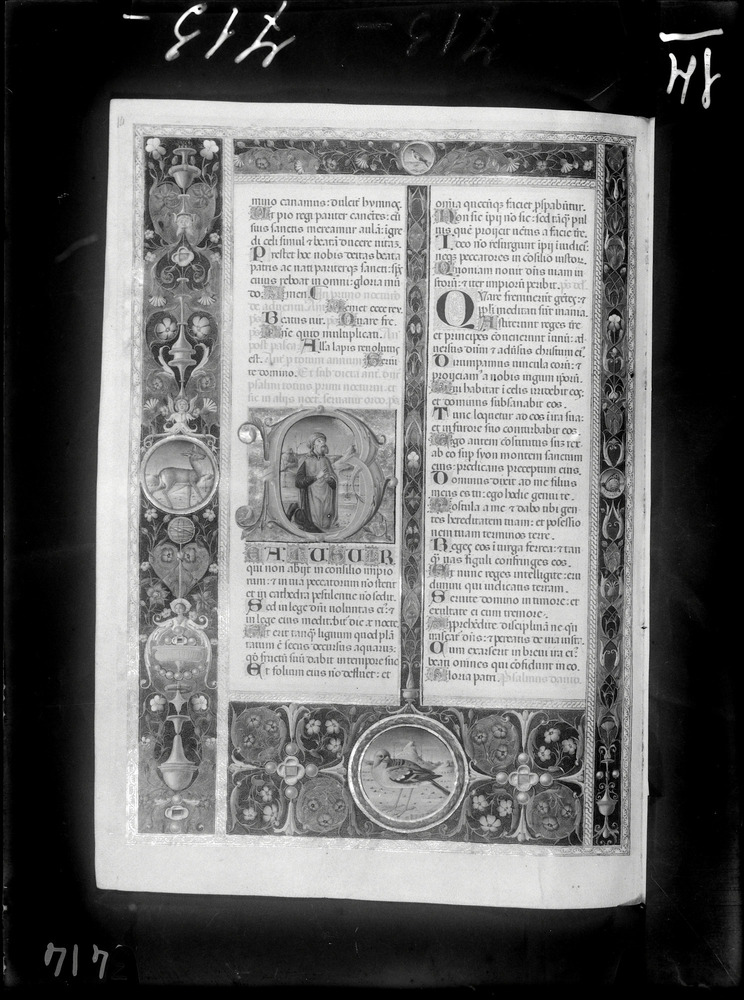 713-
14
10
mino canamus: dulceſ hymnos.
Ut pio regi pariter canētes: cū
ſuis ſanctis mereamur aulā: īgre
di celi ſimul ⁊ beatā ducere uitaʒ.
Preſtet hoc nobis deitas beata
patris ac nati pariterqꝫ ſancti: ſpſ
cuius reboat in omni: gloria mū
do: Amen.
Venet ecce rex.
Beatus uir. Quare fre.
Dn̄e quid multiplicati.
Alla lapis reuolutus
eſt. Serui
te domino.
B
EATUS UIR
qui non abijt in conſilio impio
rum: ⁊ in uia peccatorum nō ſtetit
et in cathedra peſtilentie nō ſedit.
Sed in lege dn̄i uoluntas eiꝰ: ⁊
in lege eius meditabit᷑ die ac nocte
Et erit tanqꝫ lignum quod plā
tatum ē ſecus decurſus aquarum:
qd̓ fructū ſuū dabit in tempore ſuo
Et folium eius nō defluet: et
omīa quecūqꝫ faciet pſpabūtur.
Non ſic ipij nō ſic: ſed tāqꝫ pul
uis quē proijcit uētus a facie tre.
Ideo nō reſurgunt ipij iudicio:
neqꝫ peccatores in cōſilio iuſtoꝝ.
Quoniam nouit dn̄s uiam iu
ſtorū: ⁊ iter impiorū peribit.
Quare fremuerūt gētes: ⁊
ppl̓i meditati ſūt inania.
Aſtiterunt reges tre
et principes cōuenerunt inunū: ad
uerſus dūm ⁊ aduſus chriſtum eiꝰ
Dirumpamus uincula eorū: ⁊
proijciam᷒ a nobis iugum ipſorū.
Qui habitat ī celis irridebit eos:
et dominus ſubſanabit eos.
Tunc loquetur ad eos ī ira ſua:
et in furore ſuo conturbabit eos
Ego autem cōſtitutus ſuz rex
ab eo ſup ſyon montem ſanctum
eius: predicans preceptum eius.
Dominus dixit ad me filius
meus es tu: ego hodie genui te.
Poſtula a me ⁊ dabo tibi gen
tes hereditatem tuam: et poſſeſſio
nem tuam terminos terre.
Reges eos ī uirga ferrea: ⁊ tan
qꝫ uas figuli confringes eos.
Et nunc reges intelligite: eru
dimini qui iudicatis terram.
Seruite domino in timore: et
exultate ei cum tremore.
Apprehēdite diſciplinā ne qn̄
iraſcat᷑ dn̄s: ⁊ pereatis de uia iuſta.
Cum exarſerit in breui ira eiꝰ
beati omnes qui cōfidunt in eo.
Gloria patri. Pſalmus dauid.
717